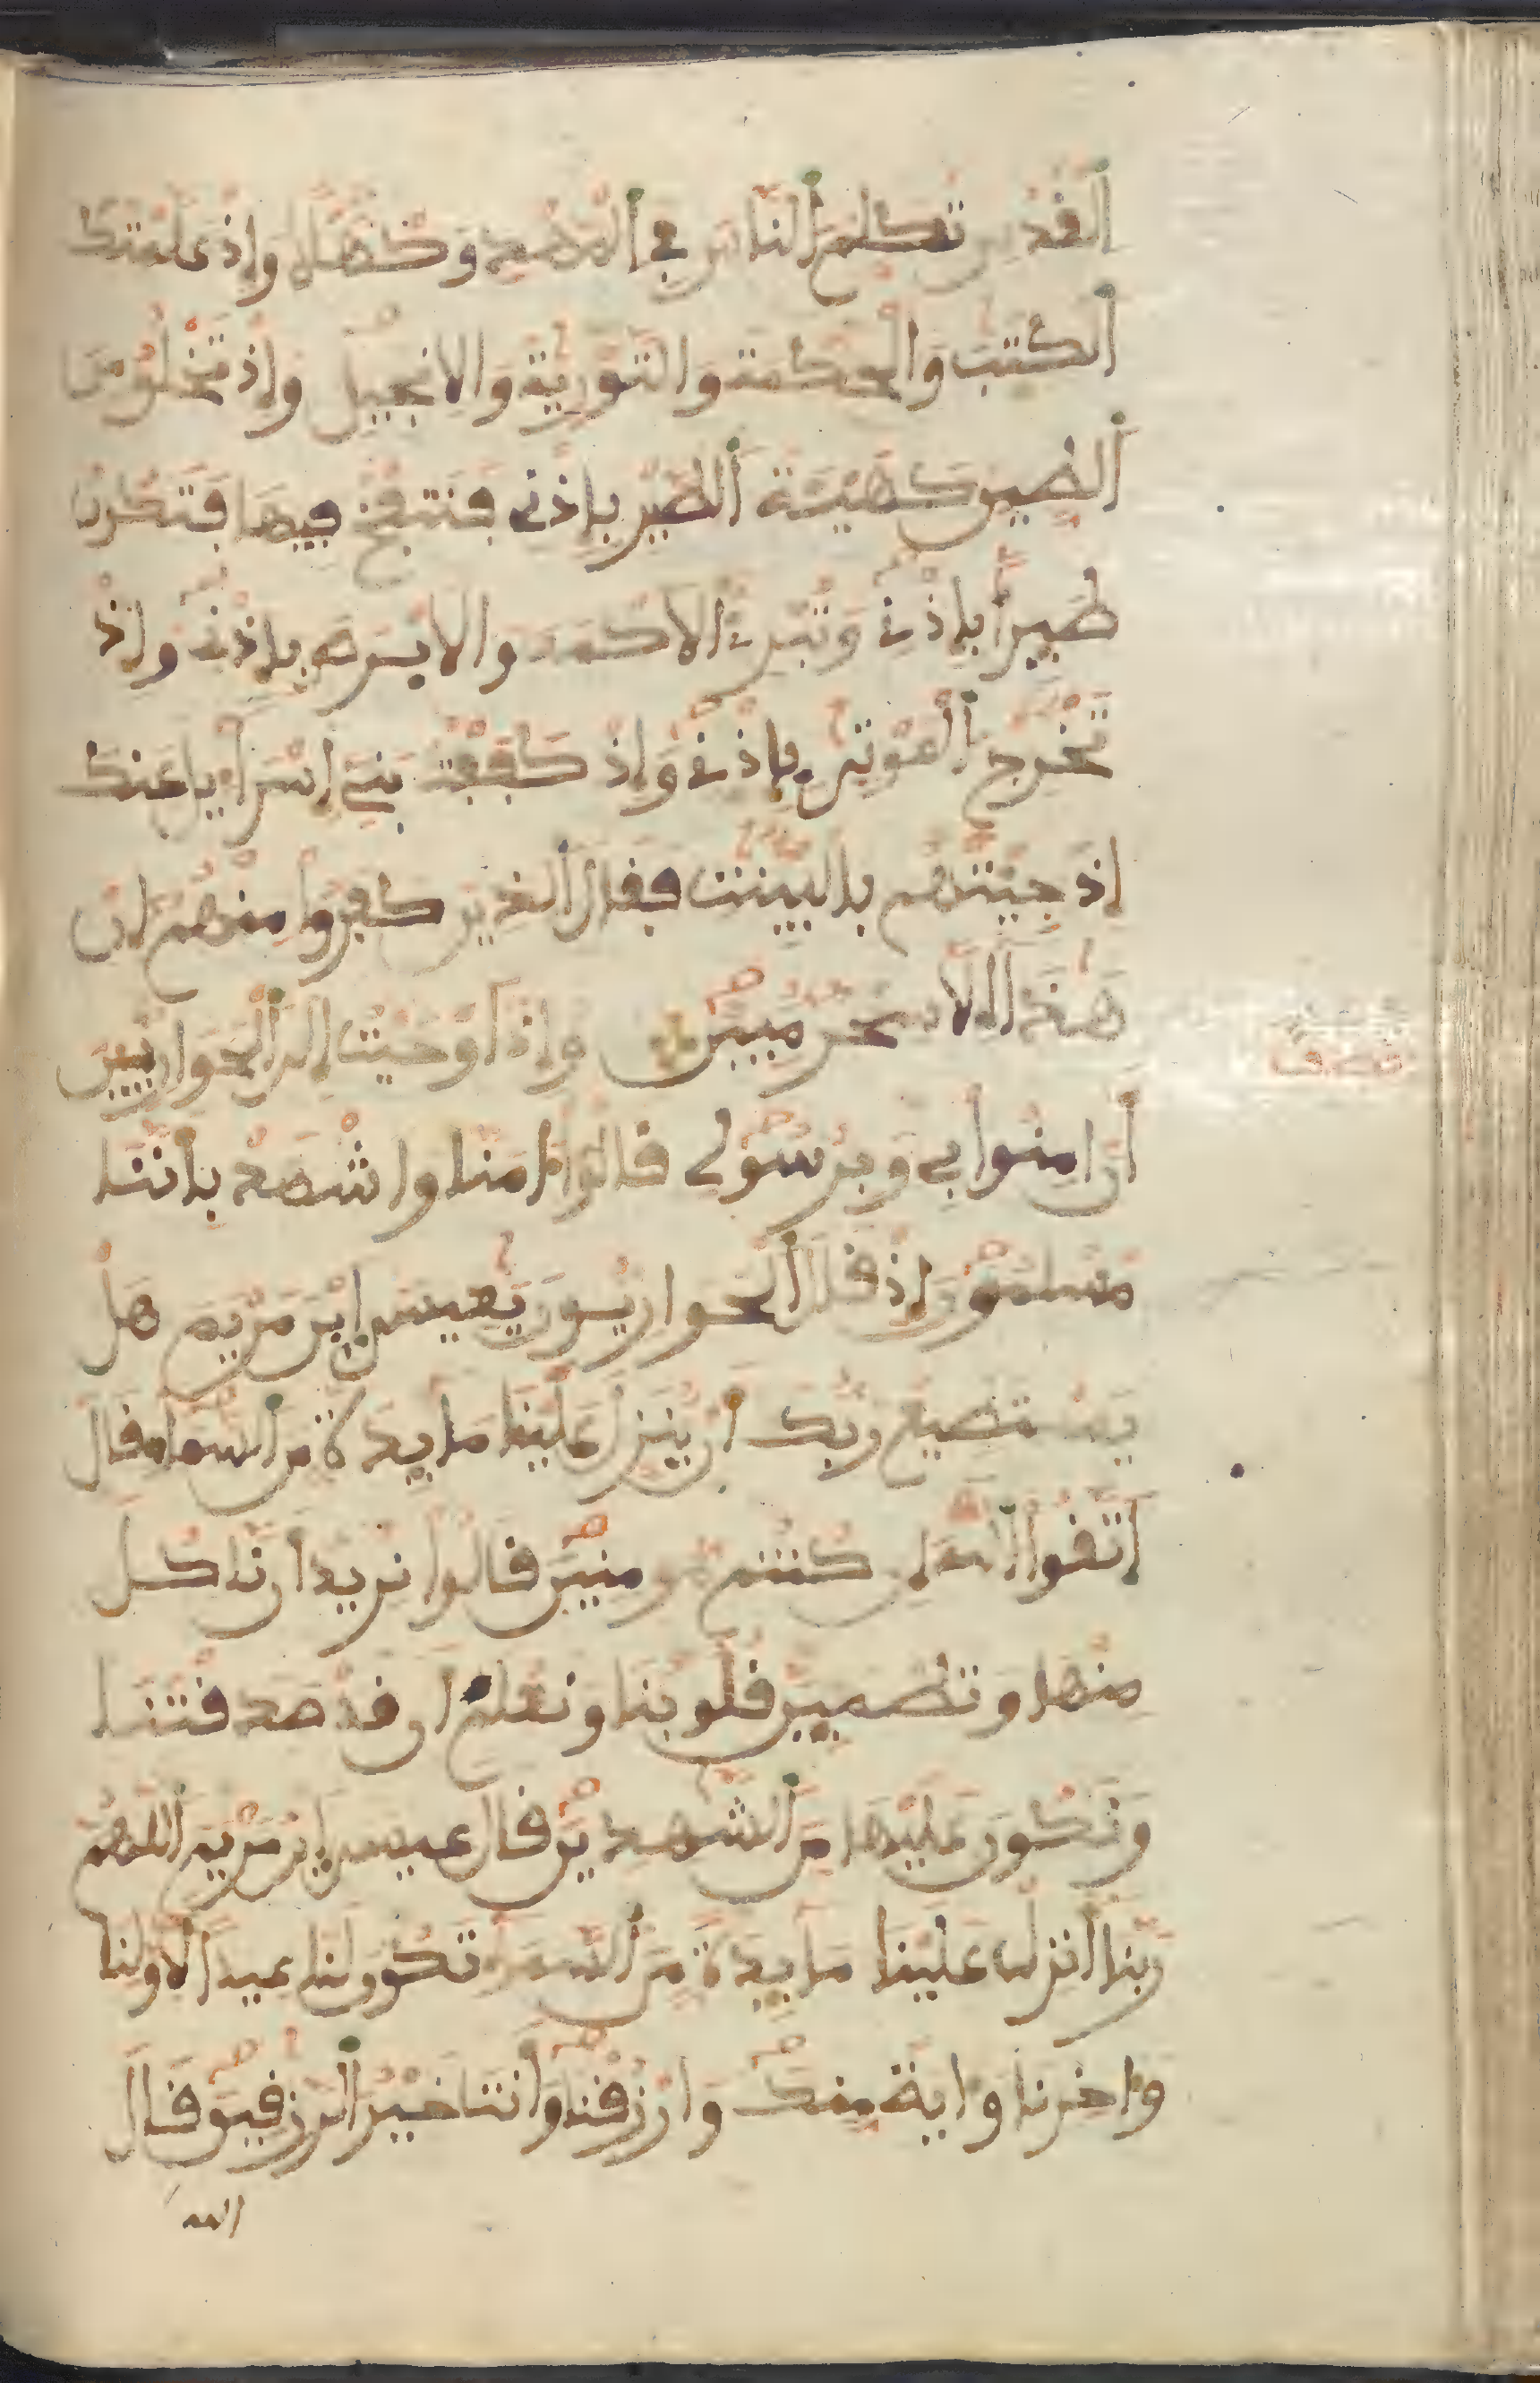 ألقدس تكلم ألناس في ألمهد وكهلا وإذ علمتك
ألكتب والحكمة والتورية والانجيل وإذ تخلق من
ألطين كهيئة ألطير بإذني فتنفخ فيها فتكون
طيرا بإذني وتبرئ الاكمه والابرص بإذني وإذ
تخرج ألموتى بإذني وإذ كففت بني إسرايل عنك
إذ جئتهم بالبينت فقال ألذين كفروا منهم إن
هذا إلا سحر مبين وإذ أوحيت إلى ألحوارين
نصف
أن امنوا بي وبرسولي قالوا امنا واشهد بأننا
مسلمون إذ قال ألحواريون يعيسى إبن مريم هل
يستطيع ربك أن ينزل علينا مايدة من ألسماء قال
اتقوا الله إن كنتم مومنين قالوا نريد أن ناكل
منها وتطمين قلوبنا ونعلم أن قد صدقتنا
ونكون عليها من ألشهدين قال عيسى إبن مريم أللهم
ربنا أنزل علينا مايدة من ألسماء تكون لنا عيدا لأولنا
واخرنا واية منك وارزقنا وأنت خير ألرزقين قال
الله